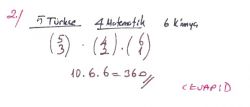 2.) 5 Türkçe 4 Matematik 6 Kimya
(5 3) . (4 2) . (6 1)
10.6.6 = 360
CEVAP D